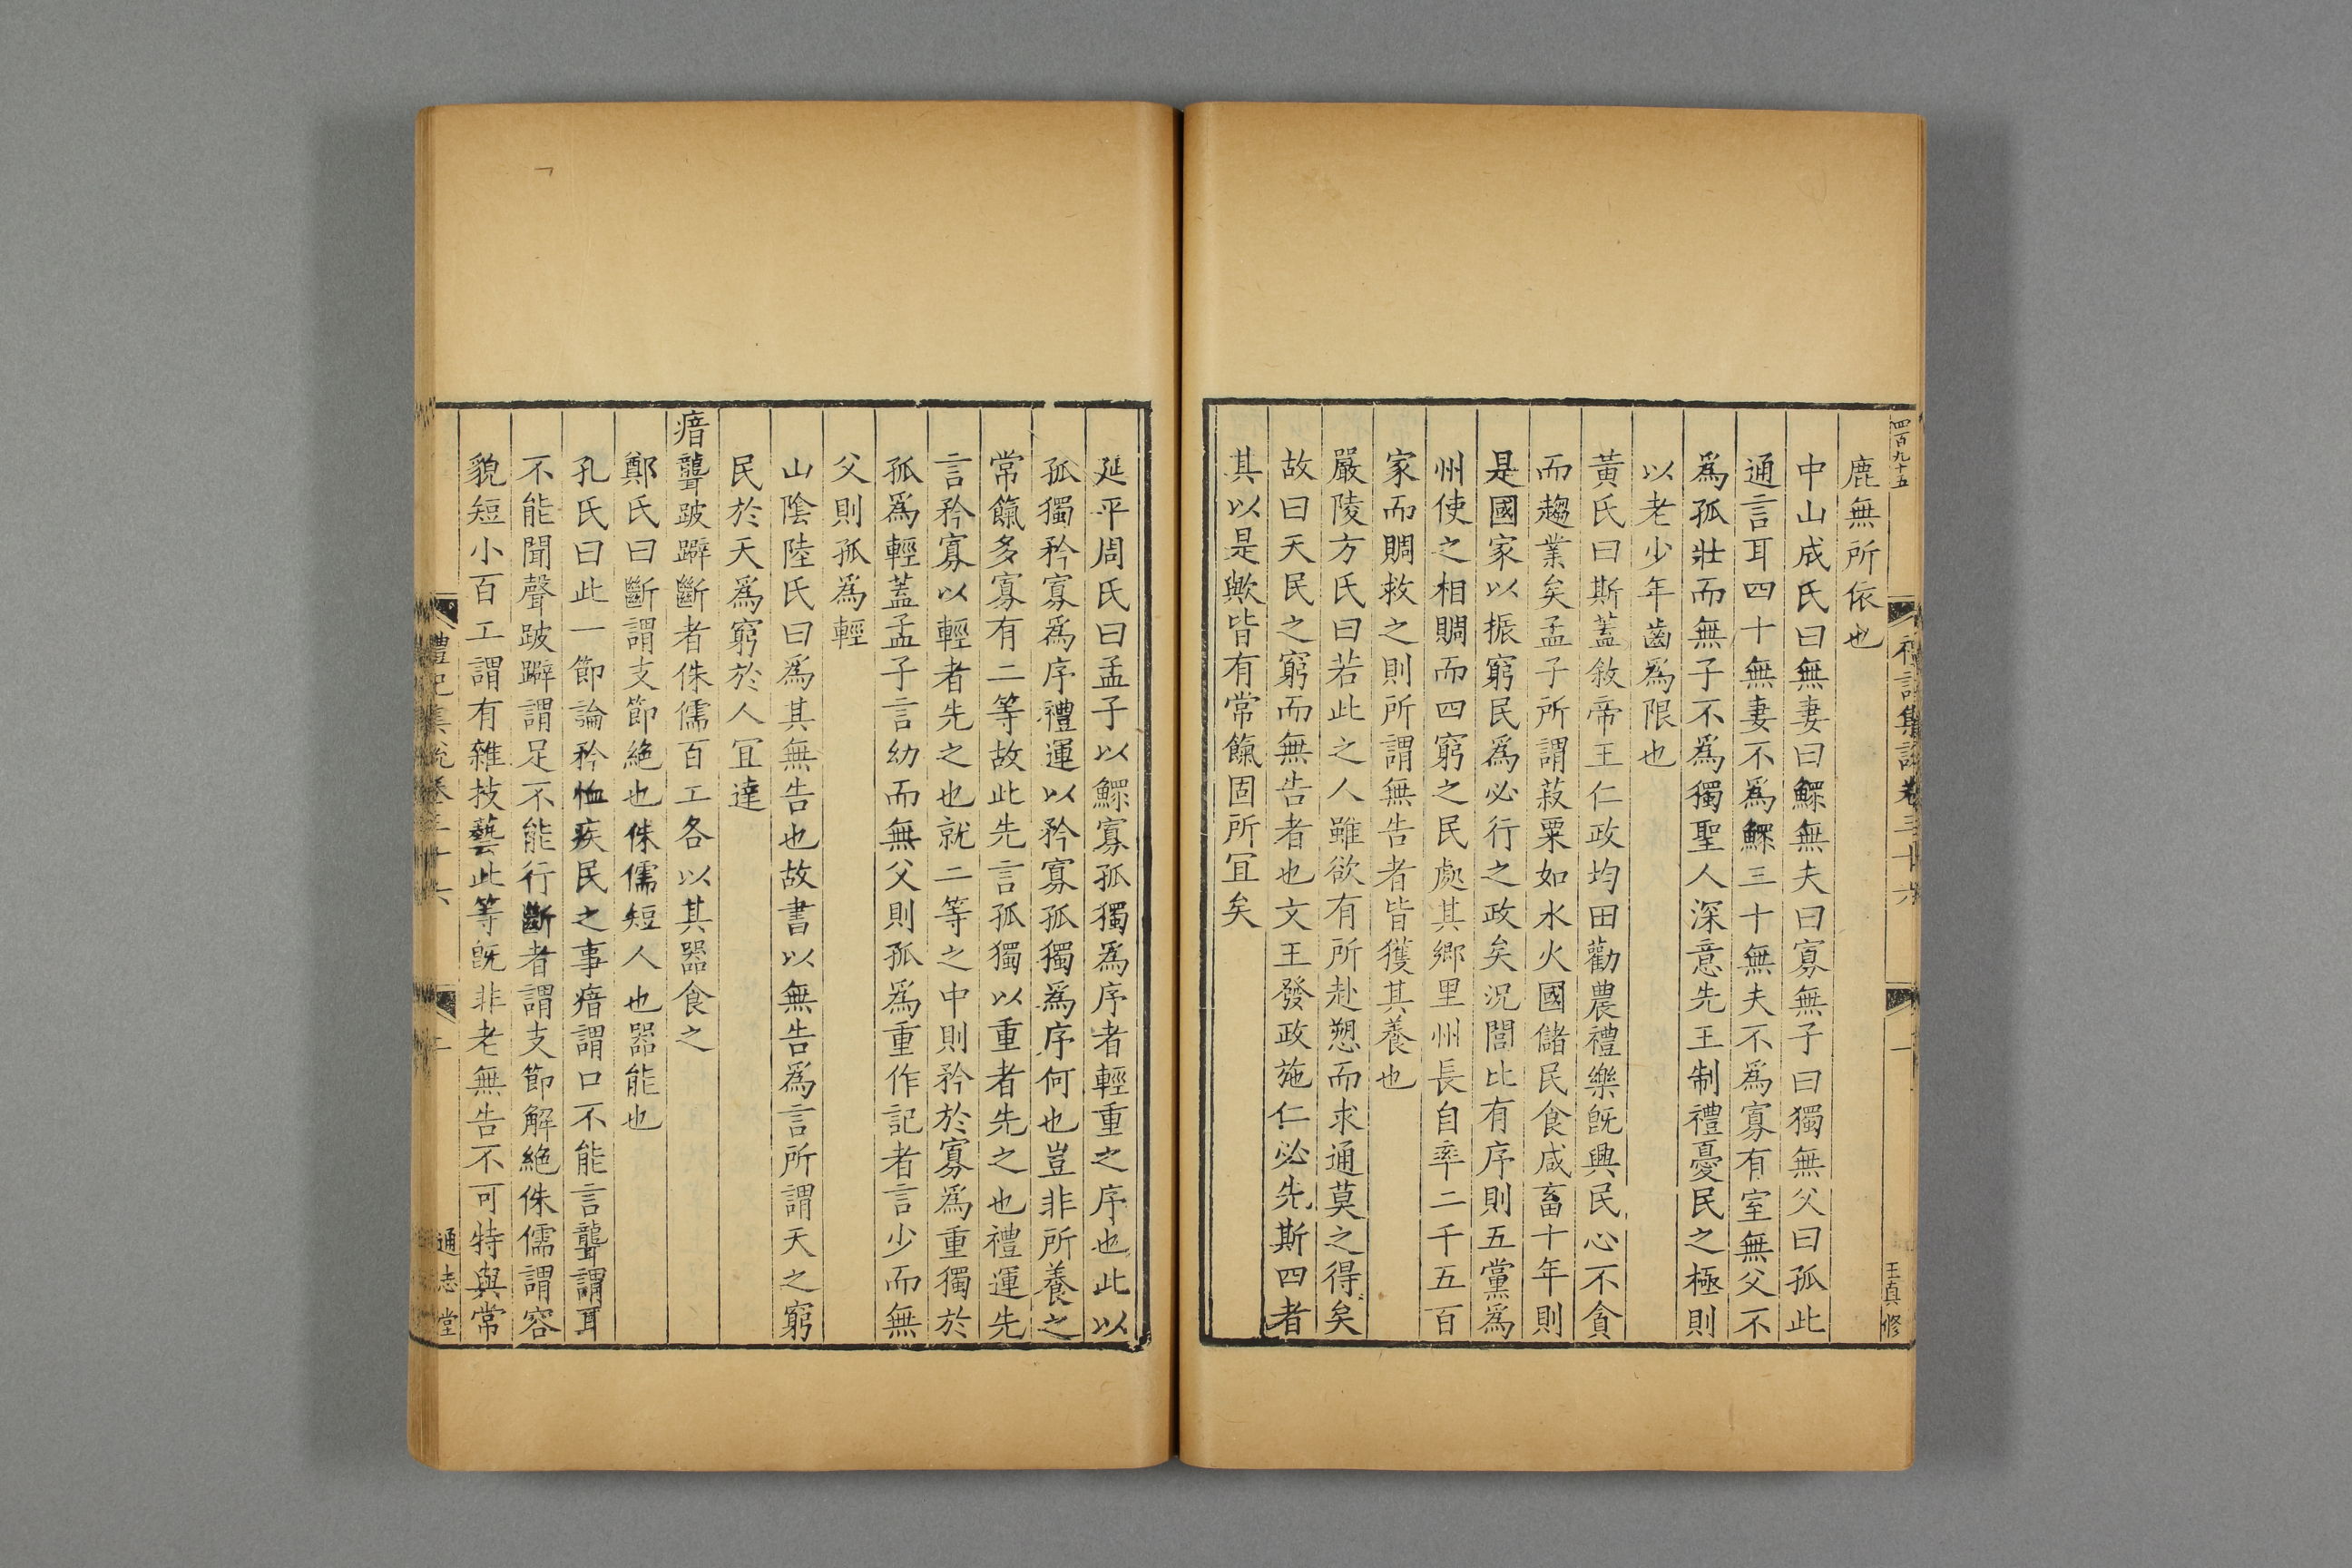 四百九十五
禮記集說卷三十六
一
王真修
鹿無所依也
中山成氏曰無妻曰鰥無夫曰寡無子曰獨無父曰孤此
通言耳四十無妻不爲鰥三十無夫不爲寡有室無父不
爲孤壯而無子不爲獨聖人深意先王制禮憂民之極則
以老少年齒爲限也
黃氏曰斯蓋敘帝王仁政均田勸農禮樂旣興民心不貪
而趨業矣孟子所謂菽粟如水火國儲民食咸畜十年則
是國家以振窮民爲必行之政矣況閭比有序則五黨爲
州使之相賙而四窮之民處其鄉里州長自率二千五百
家而賙救之則所謂無告者皆獲其養也
嚴陵方氏曰若此之人雖欲有所赴愬而求通莫之得矣
故曰天民之窮而無告者也文王發政施仁必先斯四者
其以是歟皆有常餼固所宜矣
延平周氏曰孟子以鰥寡孤獨爲序者輕重之序也此以
孤獨矜寡爲序禮運以矜寡孤獨爲序何也豈非所養之
常餼多寡有二等故此先言孤獨以重者先之也禮運先
言矜寡以輕者先之也就二等之中則矜於寡爲重獨於
孤爲輕蓋孟子言幼而無父則孤爲重作記者言少而無
父則孤爲輕
山陰陸氏曰爲其無告也故書以無告爲言所謂天之窮
民於天爲窮於人宜達
瘖聾跛躃斷者侏儒百工各以其器食之
鄭氏曰斷謂支節絶也侏儒短人也器能也
孔氏曰此一節論矜恤疾民之事瘖謂口不能言聾謂耳
不能聞聲跛躃謂足不能行斷者謂支節解絶侏儒謂容
貌短小百工謂有雜技藝此等旣非老無告不可特與常
禮記集說卷三十六
二
通志堂